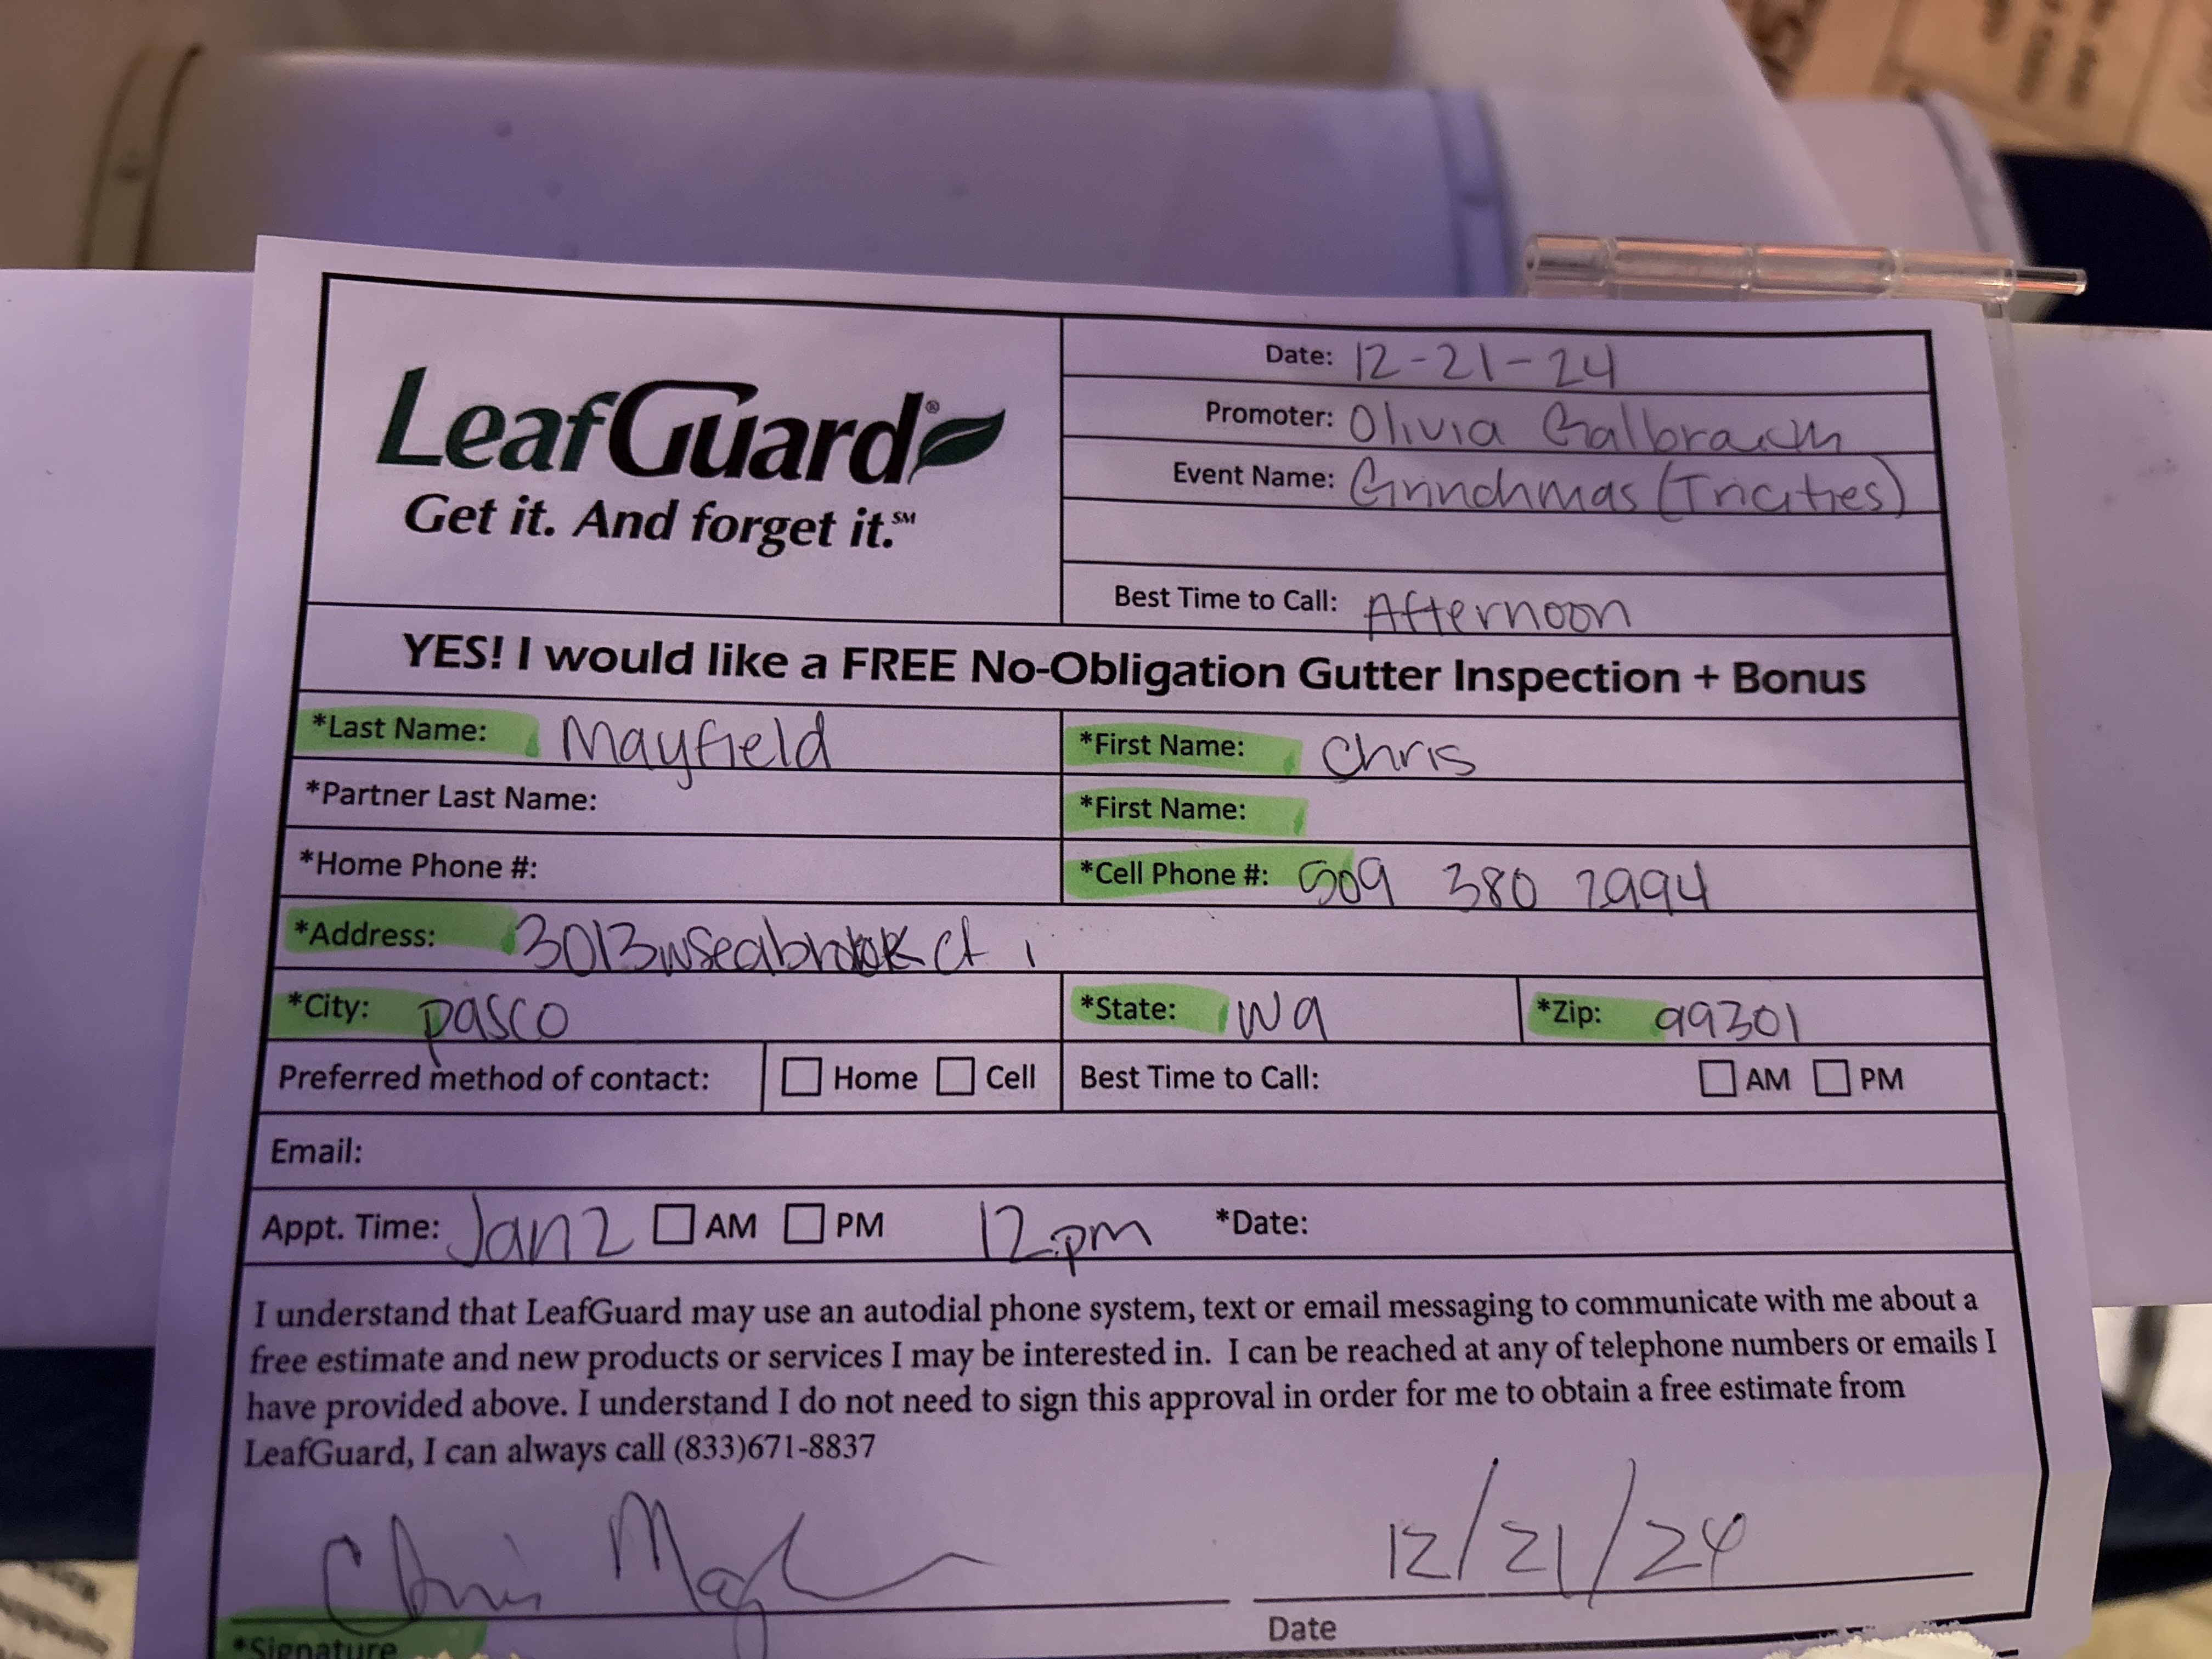 LeafGuard®
Get it. And forget it.℠
Date: 12-21-24
Promoter: Olivia Galbraith
Event Name: Grinchmas (Tricities)
Best Time to Call: Afternoon
YES! I would like a FREE No-Obligation Gutter Inspection + Bonus
*Last Name: Mayfield *First Name: Chris
*Partner Last Name: *First Name:
*Home Phone #: *Cell Phone #: 509 380 2994
*Address: 3013 W Seabrook Ct
*City: Pasco *State: Wa *Zip: 99301
Preferred method of contact: ☐ Home ☐ Cell Best Time to Call: ☐ AM ☐ PM
Email:
Appt. Time: Jan 2 ☐ AM ☐ PM 12pm *Date:
I understand that LeafGuard may use an autodial phone system, text or email messaging to communicate with me about a
free estimate and new products or services I may be interested in. I can be reached at any of telephone numbers or emails I
have provided above. I understand I do not need to sign this approval in order for me to obtain a free estimate from
LeafGuard, I can always call (833)671-8837
12/21/24
*Signature Date